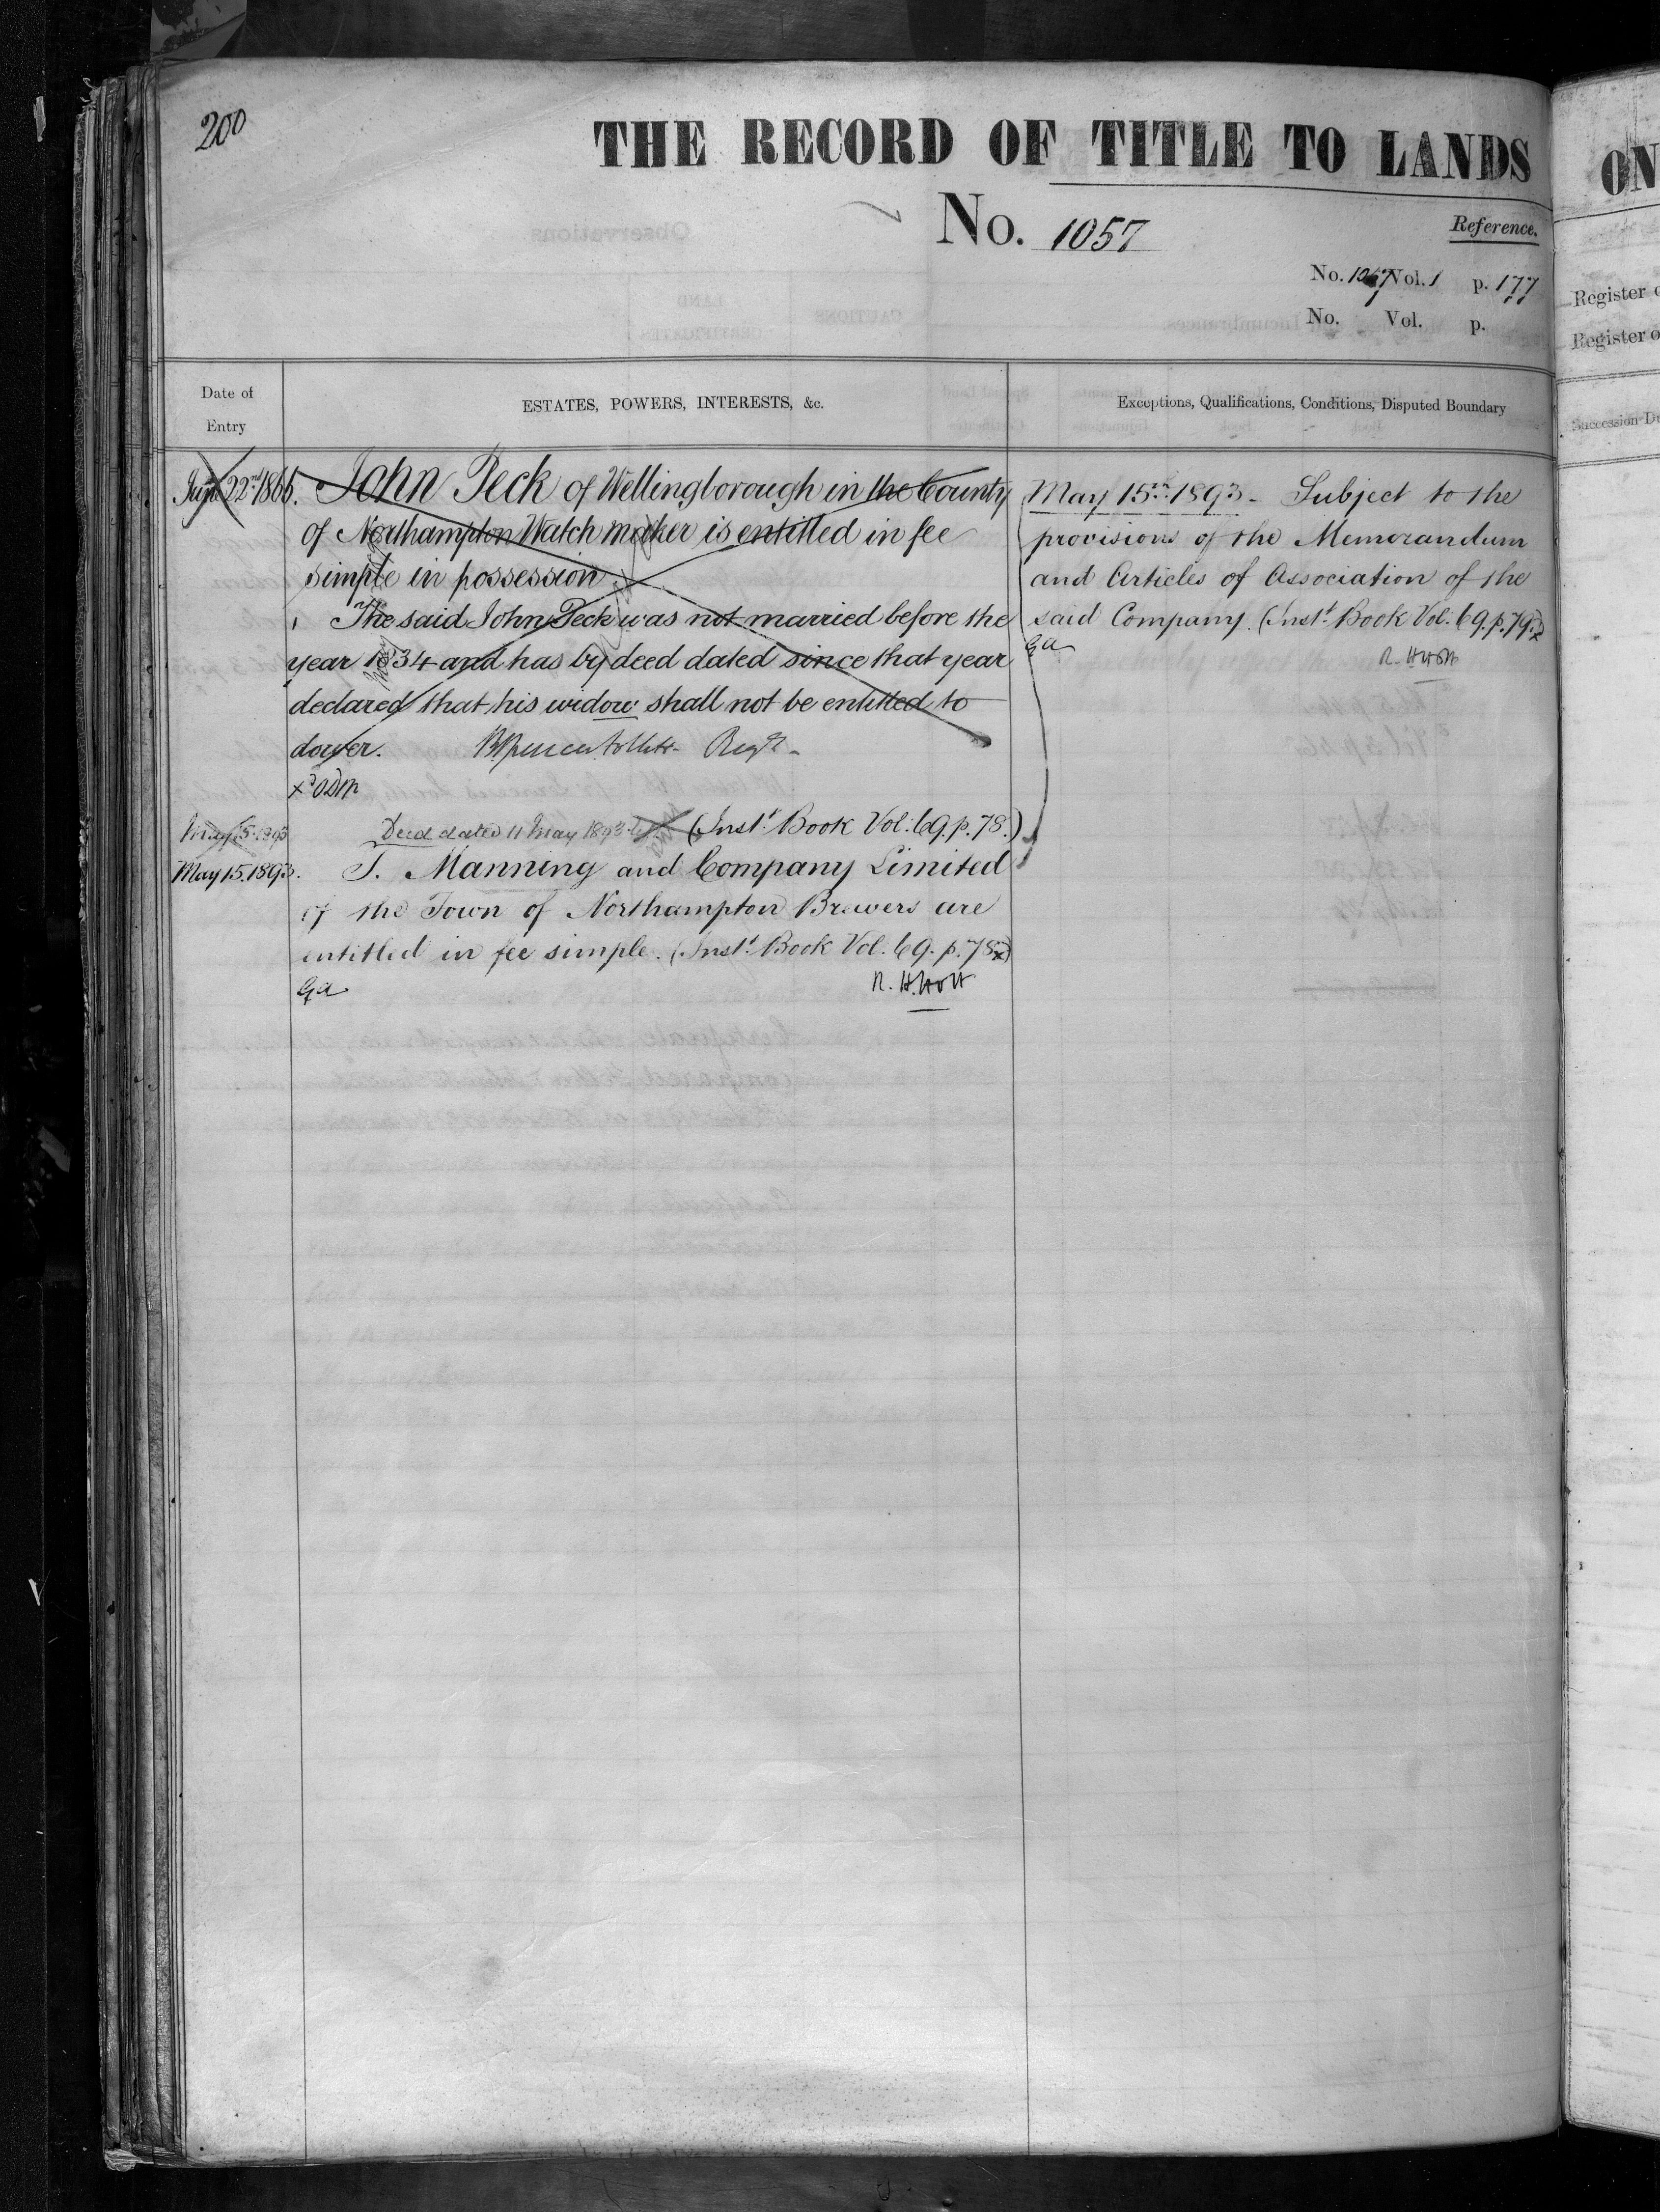 200
THE RECORD OF TITLE TO LANDS
No. 1057
Reference.
No. 1057 Vol. 1 p. 177
No. Vol. p.
Date of Entry
ESTATES, POWERS, INTERESTS, &c.
Exceptions, Qualifications, Conditions, Disputed Boundary
22nd 1866. John Peck of Wellingborough in the County
of Northampton Watch maker is entitled in fee
simple in possession.
The said John Peck was not married before the
year 1834 and has by deed dated since that year
declared that his widow shall not be entitled to
dower. Regr.
May 15. 1893 Deed dated 11 May 1893 (Inst. Book Vol: 69. p. 78.)
May 15. 1893. T. Manning and Company Limited
of the Town of Northampton Brewers are
entitled in fee simple. (Inst. Book Vol. 69. p. 78)
Ga R. H. Holt
May 15th 1893 - Subject to the
provisions of the Memorandum
and Articles of Association of the
said Company. (Inst. Book Vol: 69. p. 79.)
Ga R. H. Holt
ON
Register
Register
Succession